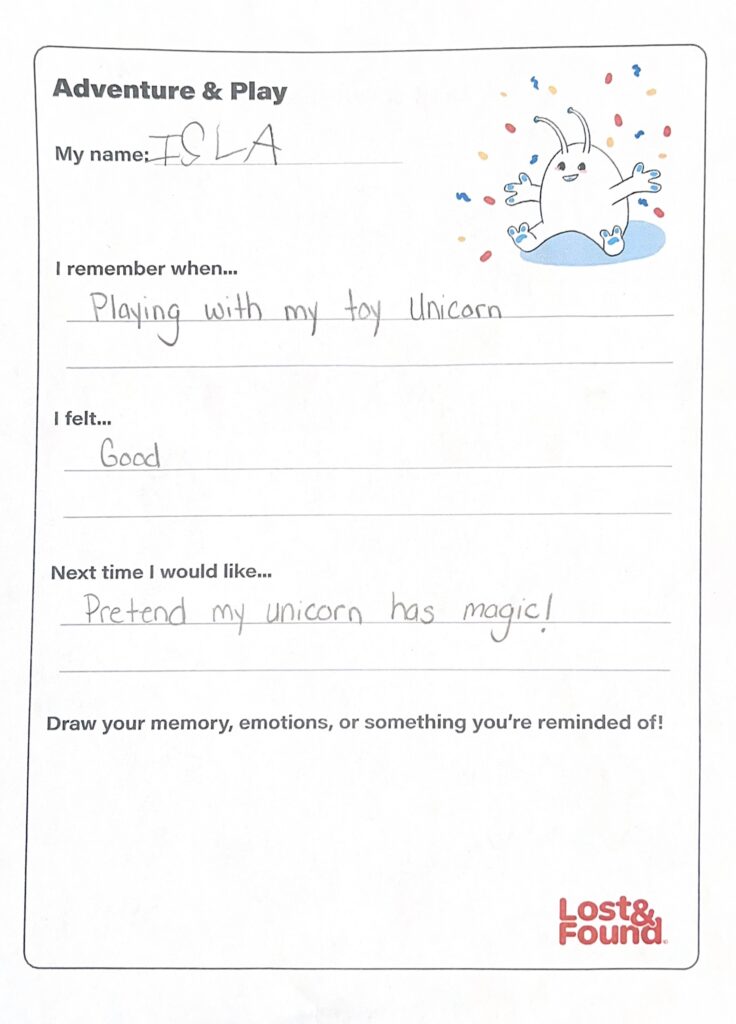 Adventure & Play
My name: ISLA
I remember when...
Playing with my toy Unicorn
I felt...
Good
Next time I would like...
Pretend my unicorn has magic!
Draw your memory, emotions, or something you're reminded of!
Lost&
Found